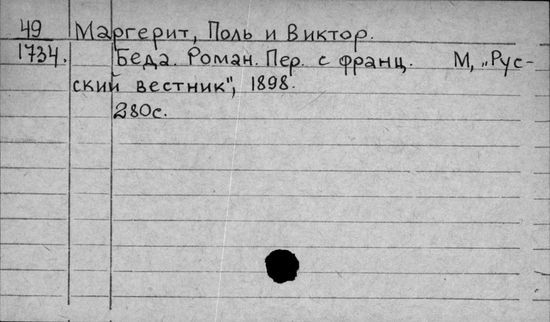 49 Маргерит, Поль и Виктор.
1734. Беда. Роман. Пер. с франц. М, „Рус-
ский вестник", 1898.
280с.